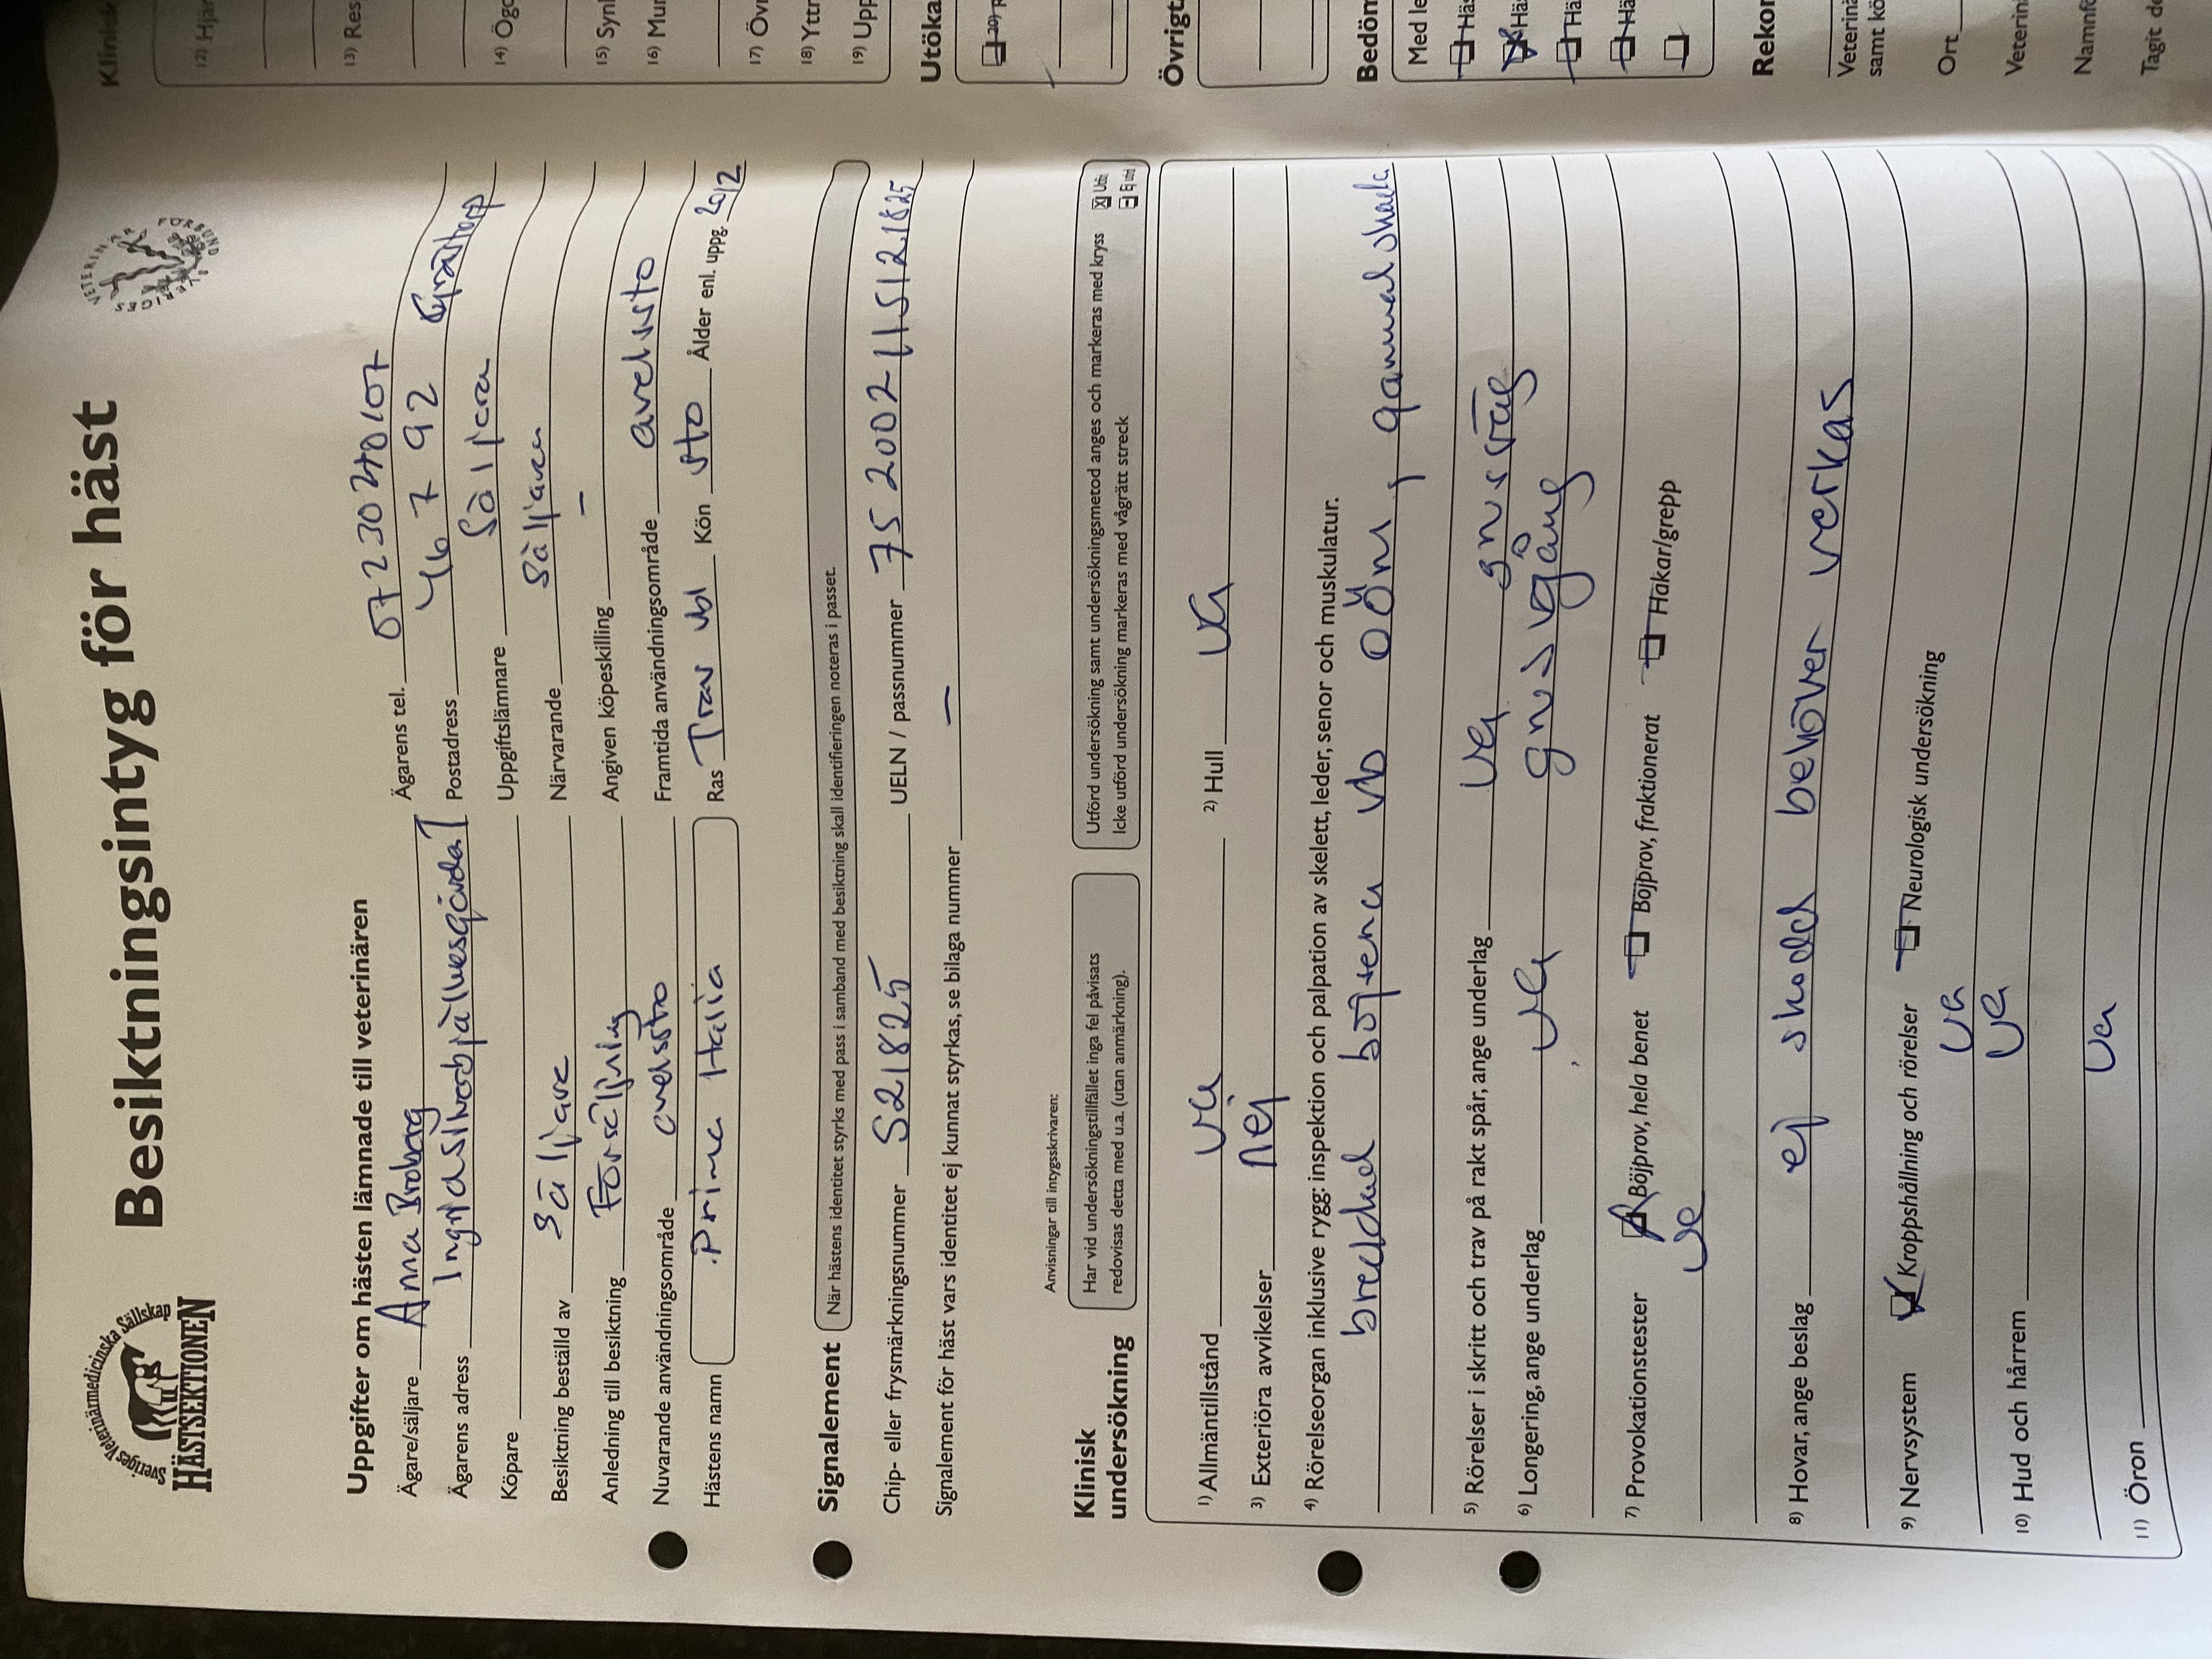 Sveriges Veterinärmedicinska Sällskap
HÄSTSEKTIONEN
Besiktningsintyg för häst
SVERIGES VETERINÄRFÖRBUND
Uppgifter om hästen lämnade till veterinären
Ägare/säljare Anna Broberg Ägarens tel. 07230240107
Ägarens adress Postadress 467 92
Köpare Uppgiftslämnare Säljare
Besiktning beställd av Säljare Närvarande Säljaren
Anledning till besiktning Försäljning Angiven köpeskilling –
Nuvarande användningsområde avelssto Framtida användningsområde avelssto
Hästens namn Prima Italia Ras Trav vbl Kön sto Ålder enl. uppg. 2012
Signalement När hästens identitet styrks med pass i samband med besiktning skall identifieringen noteras i passet.
Chip- eller frysmärkningsnummer S21825 UELN / passnummer 752002115121825
Signalement för häst vars identitet ej kunnat styrkas, se bilaga nummer –
Klinisk undersökning
Anvisningar till intygsskrivaren:
Har vid undersökningstillfället inga fel påvisats
redovisas detta med u.a. (utan anmärkning).
Utförd undersökning samt undersökningsmetod anges och markeras med kryss
Icke utförd undersökning markeras med vågrätt streck
1) Allmäntillstånd ua 2) Hull ua
3) Exteriöra avvikelser Nej
4) Rörelseorgan inklusive rygg: inspektion och palpation av skelett, leder, senor och muskulatur.
breddad böjsena vb oöm, gammal skada
5) Rörelser i skritt och trav på rakt spår, ange underlag ua grusväg
6) Longering, ange underlag ua grusvgång
7) Provokationstester Böjprov, hela benet Böjprov, fraktionerat Hakar/grepp
ua
8) Hovar, ange beslag ej skodd behöver verkas
9) Nervsystem Kroppshållning och rörelser Neurologisk undersökning
ua
10) Hud och hårrem ua
11) Öron ua
Klinisk
12) Hjär
13) Res
14) Ögo
15) Synl
16) Mun
17) Övr
18) Yttr
19) Upp
Utöka
20) R
Övrigt
Bedöm
Med le
Häs
Häs
Hä
Hä
Rekon
Veterinä
samt kö
Ort
Veterinä
Namnfö
Tagit de